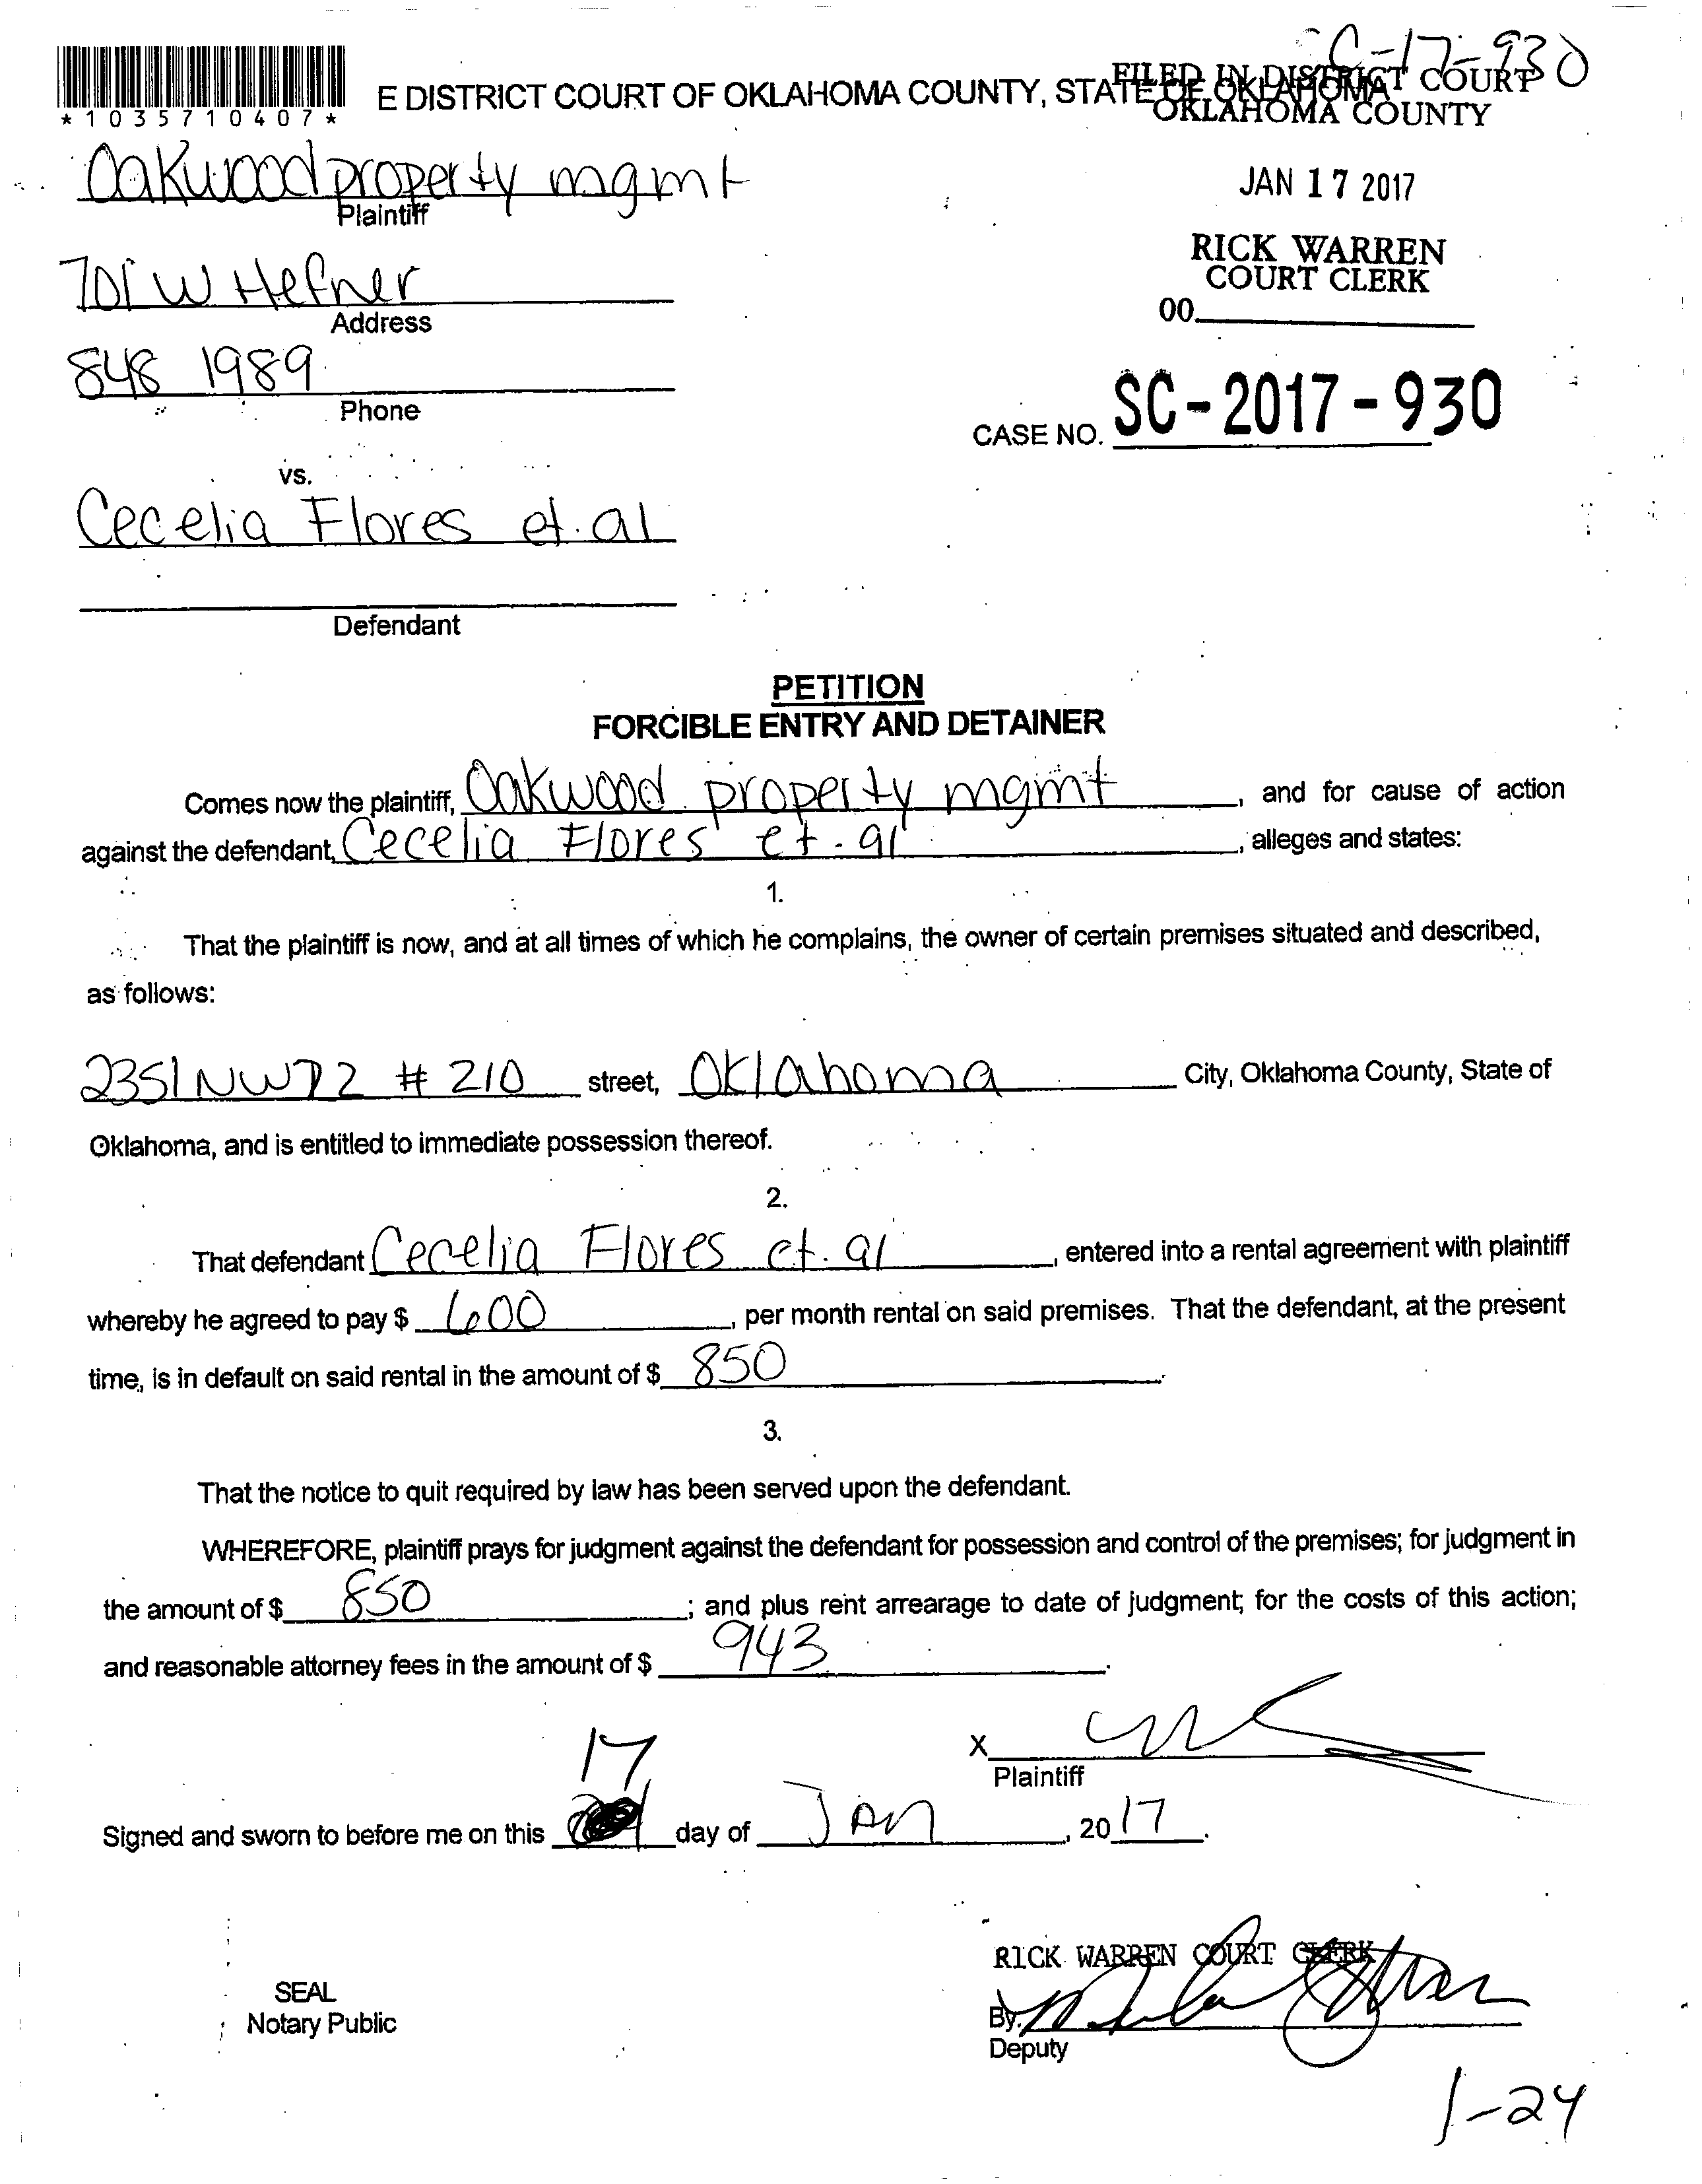 SC-17-930
E DISTRICT COURT OF OKLAHOMA COUNTY, STATE OF OKLAHOMA
FILED IN DISTRICT COURT
OKLAHOMA COUNTY
*1035710407*
Oakwood property mgmt
Plaintiff
JAN 17 2017
701 W Hefner
Address
RICK WARREN
COURT CLERK
00
848 1989
Phone
CASE NO. SC-2017-930
vs.
Cecelia Flores et. al
Defendant
PETITION
FORCIBLE ENTRY AND DETAINER
Comes now the plaintiff, Oakwood property mgmt, and for cause of action
against the defendant, Cecelia Flores et. al, alleges and states:
1.
That the plaintiff is now, and at all times of which he complains, the owner of certain premises situated and described,
as follows:
2351 NW 72 # 210 street, Oklahoma City, Oklahoma County, State of
Oklahoma, and is entitled to immediate possession thereof.
2.
That defendant Cecelia Flores et. al, entered into a rental agreement with plaintiff
whereby he agreed to pay $ 600, per month rental on said premises. That the defendant, at the present
time, is in default on said rental in the amount of $ 850.
3.
That the notice to quit required by law has been served upon the defendant.
WHEREFORE, plaintiff prays for judgment against the defendant for possession and control of the premises; for judgment in
the amount of $ 850; and plus rent arrearage to date of judgment; for the costs of this action;
and reasonable attorney fees in the amount of $ 943.
X
Plaintiff
17
Signed and sworn to before me on this day of Jan, 2017.
RICK WARREN COURT CLERK
SEAL
Notary Public
By:
Deputy
1-24